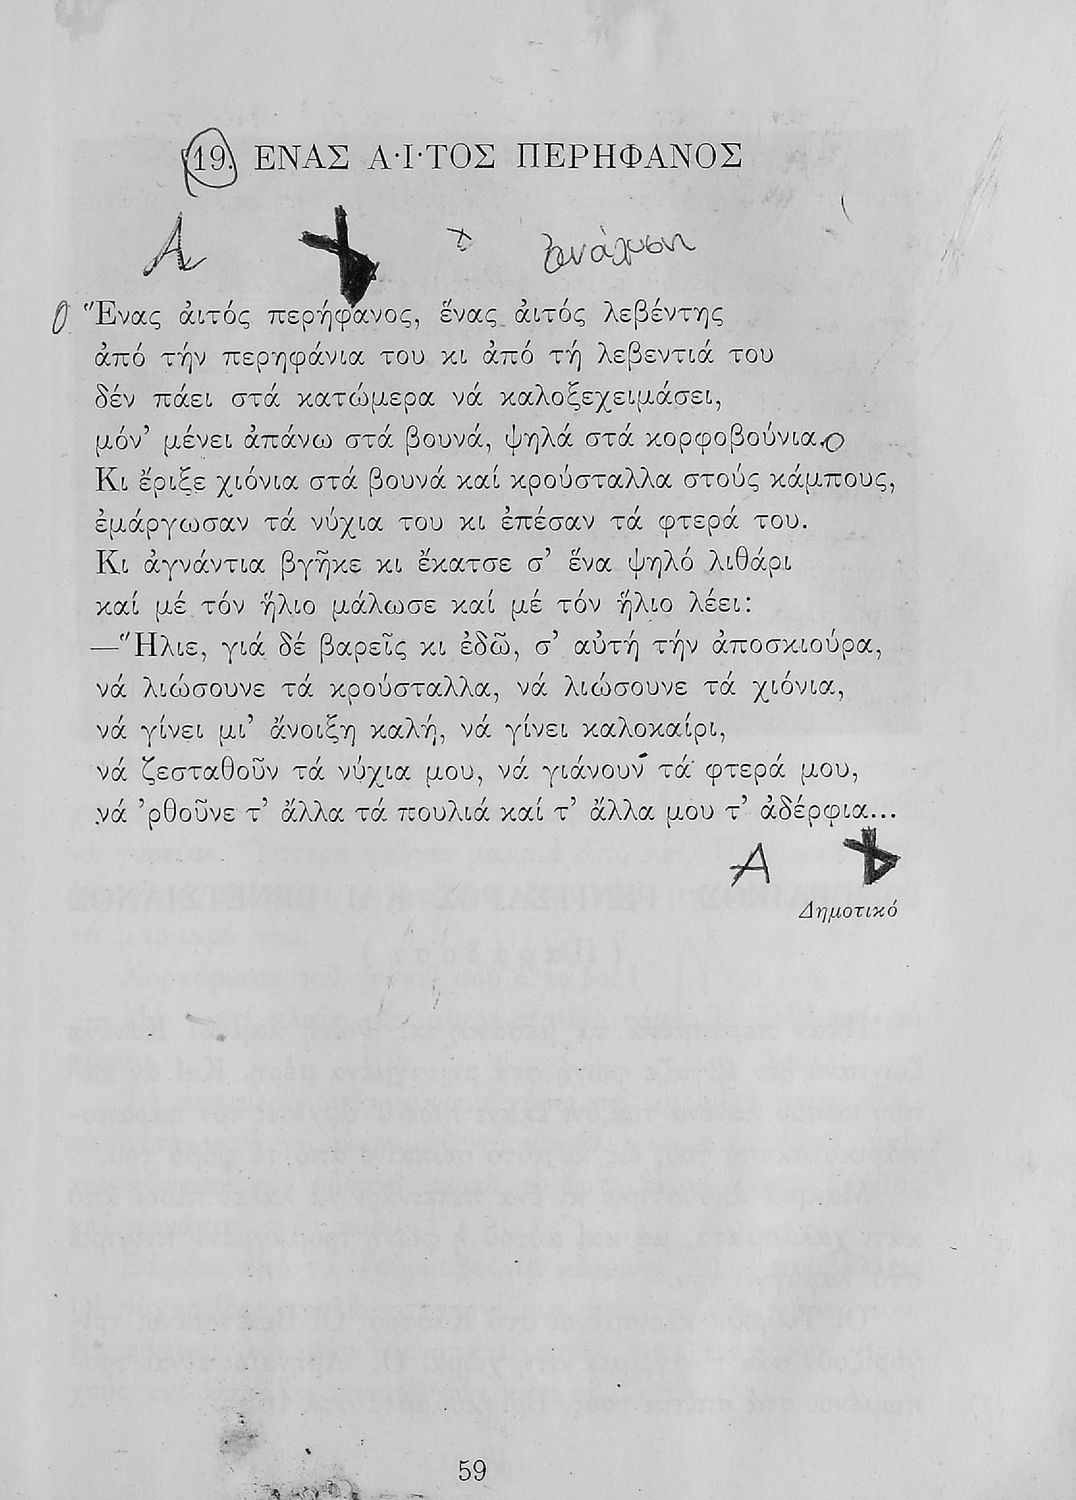 19. ΕΝΑΣ Α·Ι·ΤΟΣ ΠΕΡΗΦΑΝΟΣ
Α
Ἕνας ἀιτός περήφανος, ἕνας ἀιτός λεβέντης
ἀπό τήν περηφάνια του κι ἀπό τή λεβεντιά του
δέν πάει στά κατώμερα νά καλοξεχειμάσει,
μόν’ μένει ἀπάνω στά βουνά, ψηλά στά κορφοβούνια.
Κι ἔριξε χιόνια στά βουνά καί κρούσταλλα στούς κάμπους,
ἐμάργωσαν τά νύχια του κι ἐπέσαν τά φτερά του.
Κι ἀγνάντια βγῆκε κι ἔκατσε σ’ ἕνα ψηλό λιθάρι
καί μέ τόν ἥλιο μάλωσε καί μέ τόν ἥλιο λέει:
—Ἥλιε, γιά δέ βαρεῖς κι ἐδῶ, σ’ αὐτή τήν ἀποσκιούρα,
νά λιώσουνε τά κρούσταλλα, νά λιώσουνε τά χιόνια,
νά γίνει μι’ ἄνοιξη καλή, νά γίνει καλοκαίρι,
νά ζεσταθοῦν τά νύχια μου, νά γιάνουν τά φτερά μου,
νά ’ρθοῦνε τ’ ἄλλα τά πουλιά καί τ’ ἄλλα μου τ’ ἀδέρφια...
Α
Δημοτικό
59